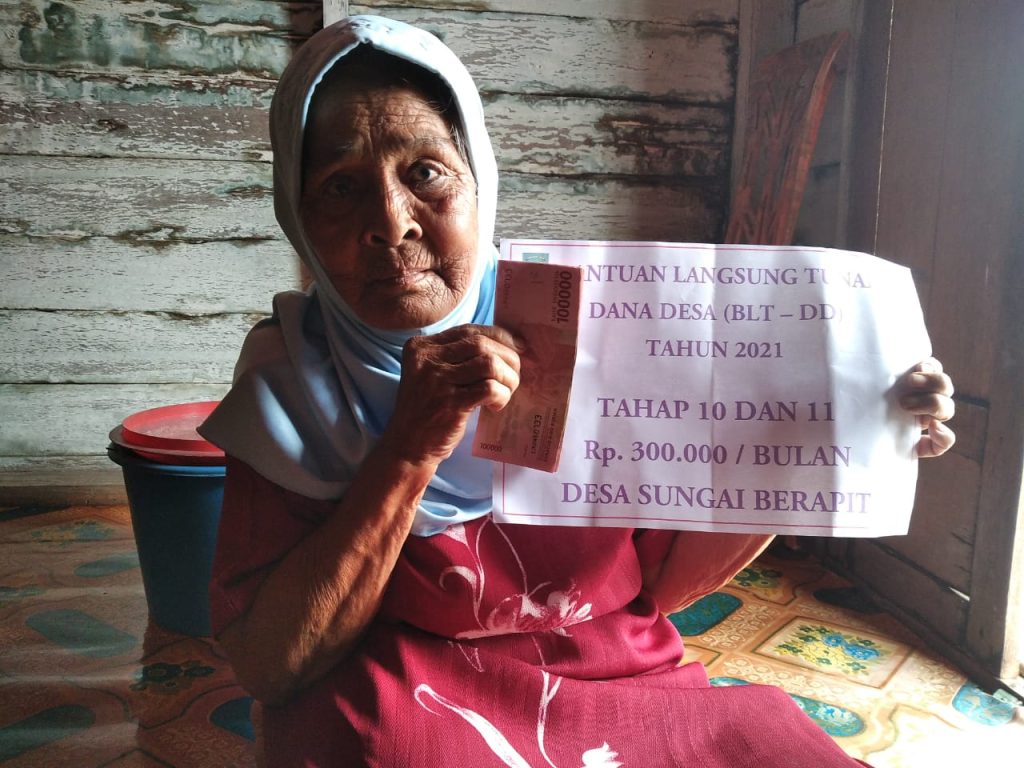 ANTUAN LANGSUNG TUNA
DANA DESA (BLT – DD)
TAHUN 2021
TAHAP 10 DAN 11
Rp. 300.000 / BULAN
DESA SUNGAI BERAPIT
100000
100000